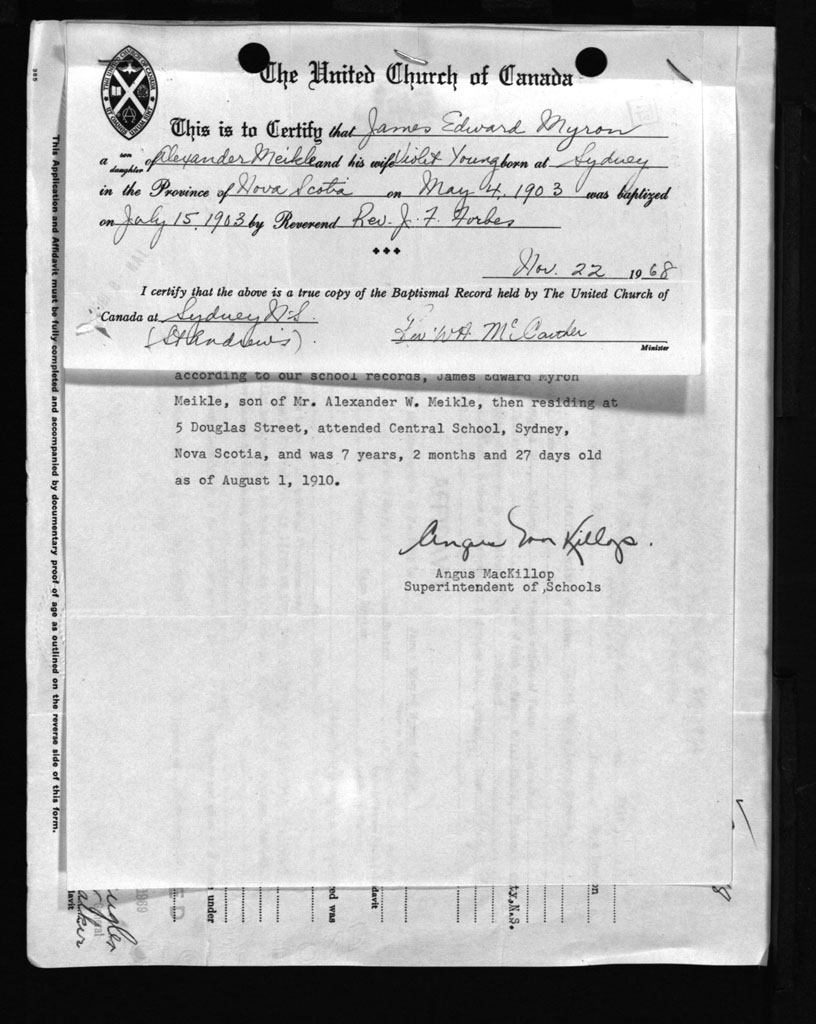 The United Church of Canada
This is to Certify that James Edward Myron
a son daughter of Alexander Meikle and his wife Violet Young born at Sydney
in the Province of Nova Scotia on May 4, 1903 was baptized
on July 15, 1903 by Reverend Rev. J. F. Forbes
Nov. 22 1968
I certify that the above is a true copy of the Baptismal Record held by The United Church of
Canada at Sydney N.S.
(St Andrew's)
Minister
according to our school records, James Edward Myron
Meikle, son of Mr. Alexander W. Meikle, then residing at
5 Douglas Street, attended Central School, Sydney,
Nova Scotia, and was 7 years, 2 months and 27 days old
as of August 1, 1910.
Angus MacKillop.
Angus MacKillop
Superintendent of Schools
This Application and Affidavit must be fully completed and accompanied by documentary proof of age as outlined on the reverse side of this form.
1969
under
ed was
davit
ty, N.S.